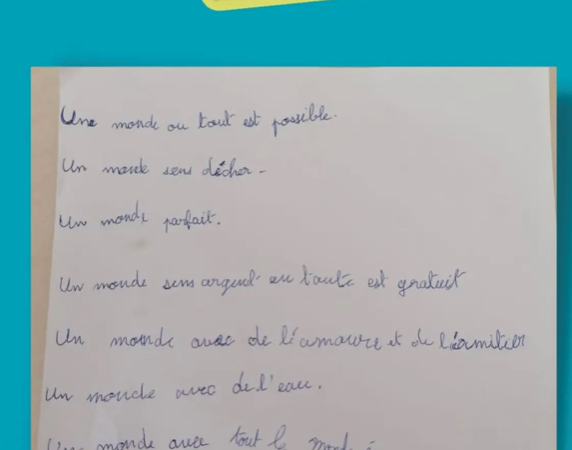 Une monde ou tout est possible.
Un monde sens décher -
Un monde parfait.
Un monde sens argent ou toute est gratuit
Un monde avec de l'éamoure et de l'éamitier
Un monde avec de l'eau.
Un monde avec tout le